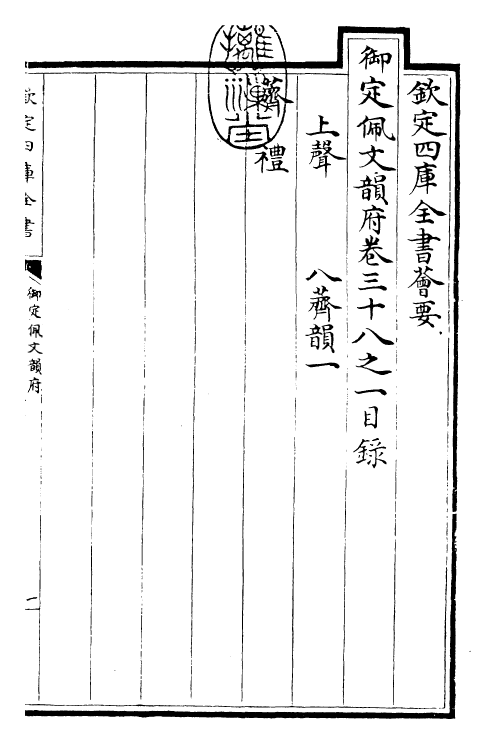 欽定四庫全書薈要
御定佩文韻府卷三十八之一目錄
上聲 八薺韻一
薺 禮
欽定四庫全書
御定佩文韻府
一